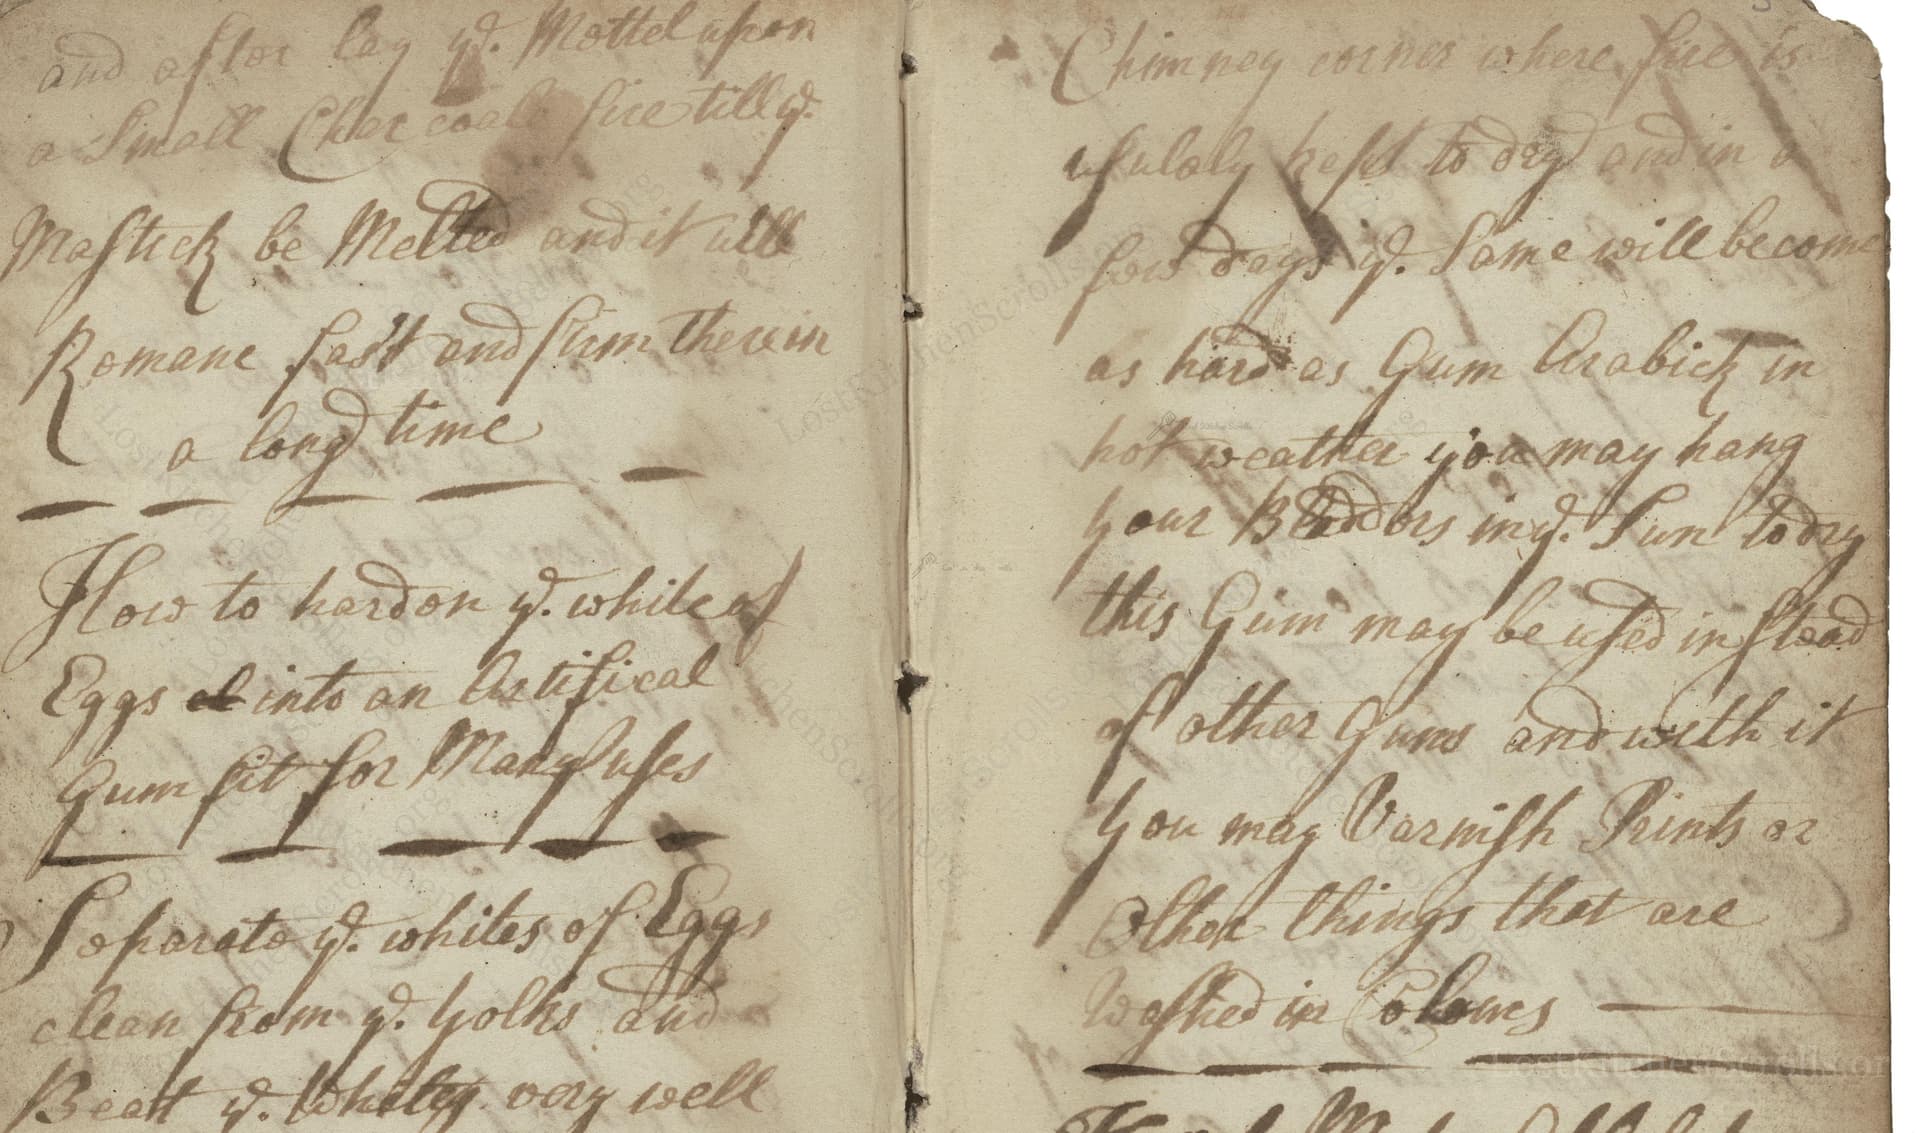 and after lay ye. Mettel upon
a Small Char coal fire till ye.
Mastick be Melted and it will
Romane fast and firm therein
a long time
How to harden ye. white of
Eggs into an Artifical
Gum fit for Many uses
Separate ye. whites of Eggs
clean from ye. yolks and
Beat ye. Whites very well
Chimney corner where fire is
usulaly kept to dry and in a
few days ye. Same will become
as hard as Gum Arabick in
hot weather you may hang
your Bladders in ye. Sun to dry
this Gum may be used in stead
of other Gums and with it
you may Varnish Prints or
Other things that are
Washed in Colowrs
LostKitchenScrolls.or